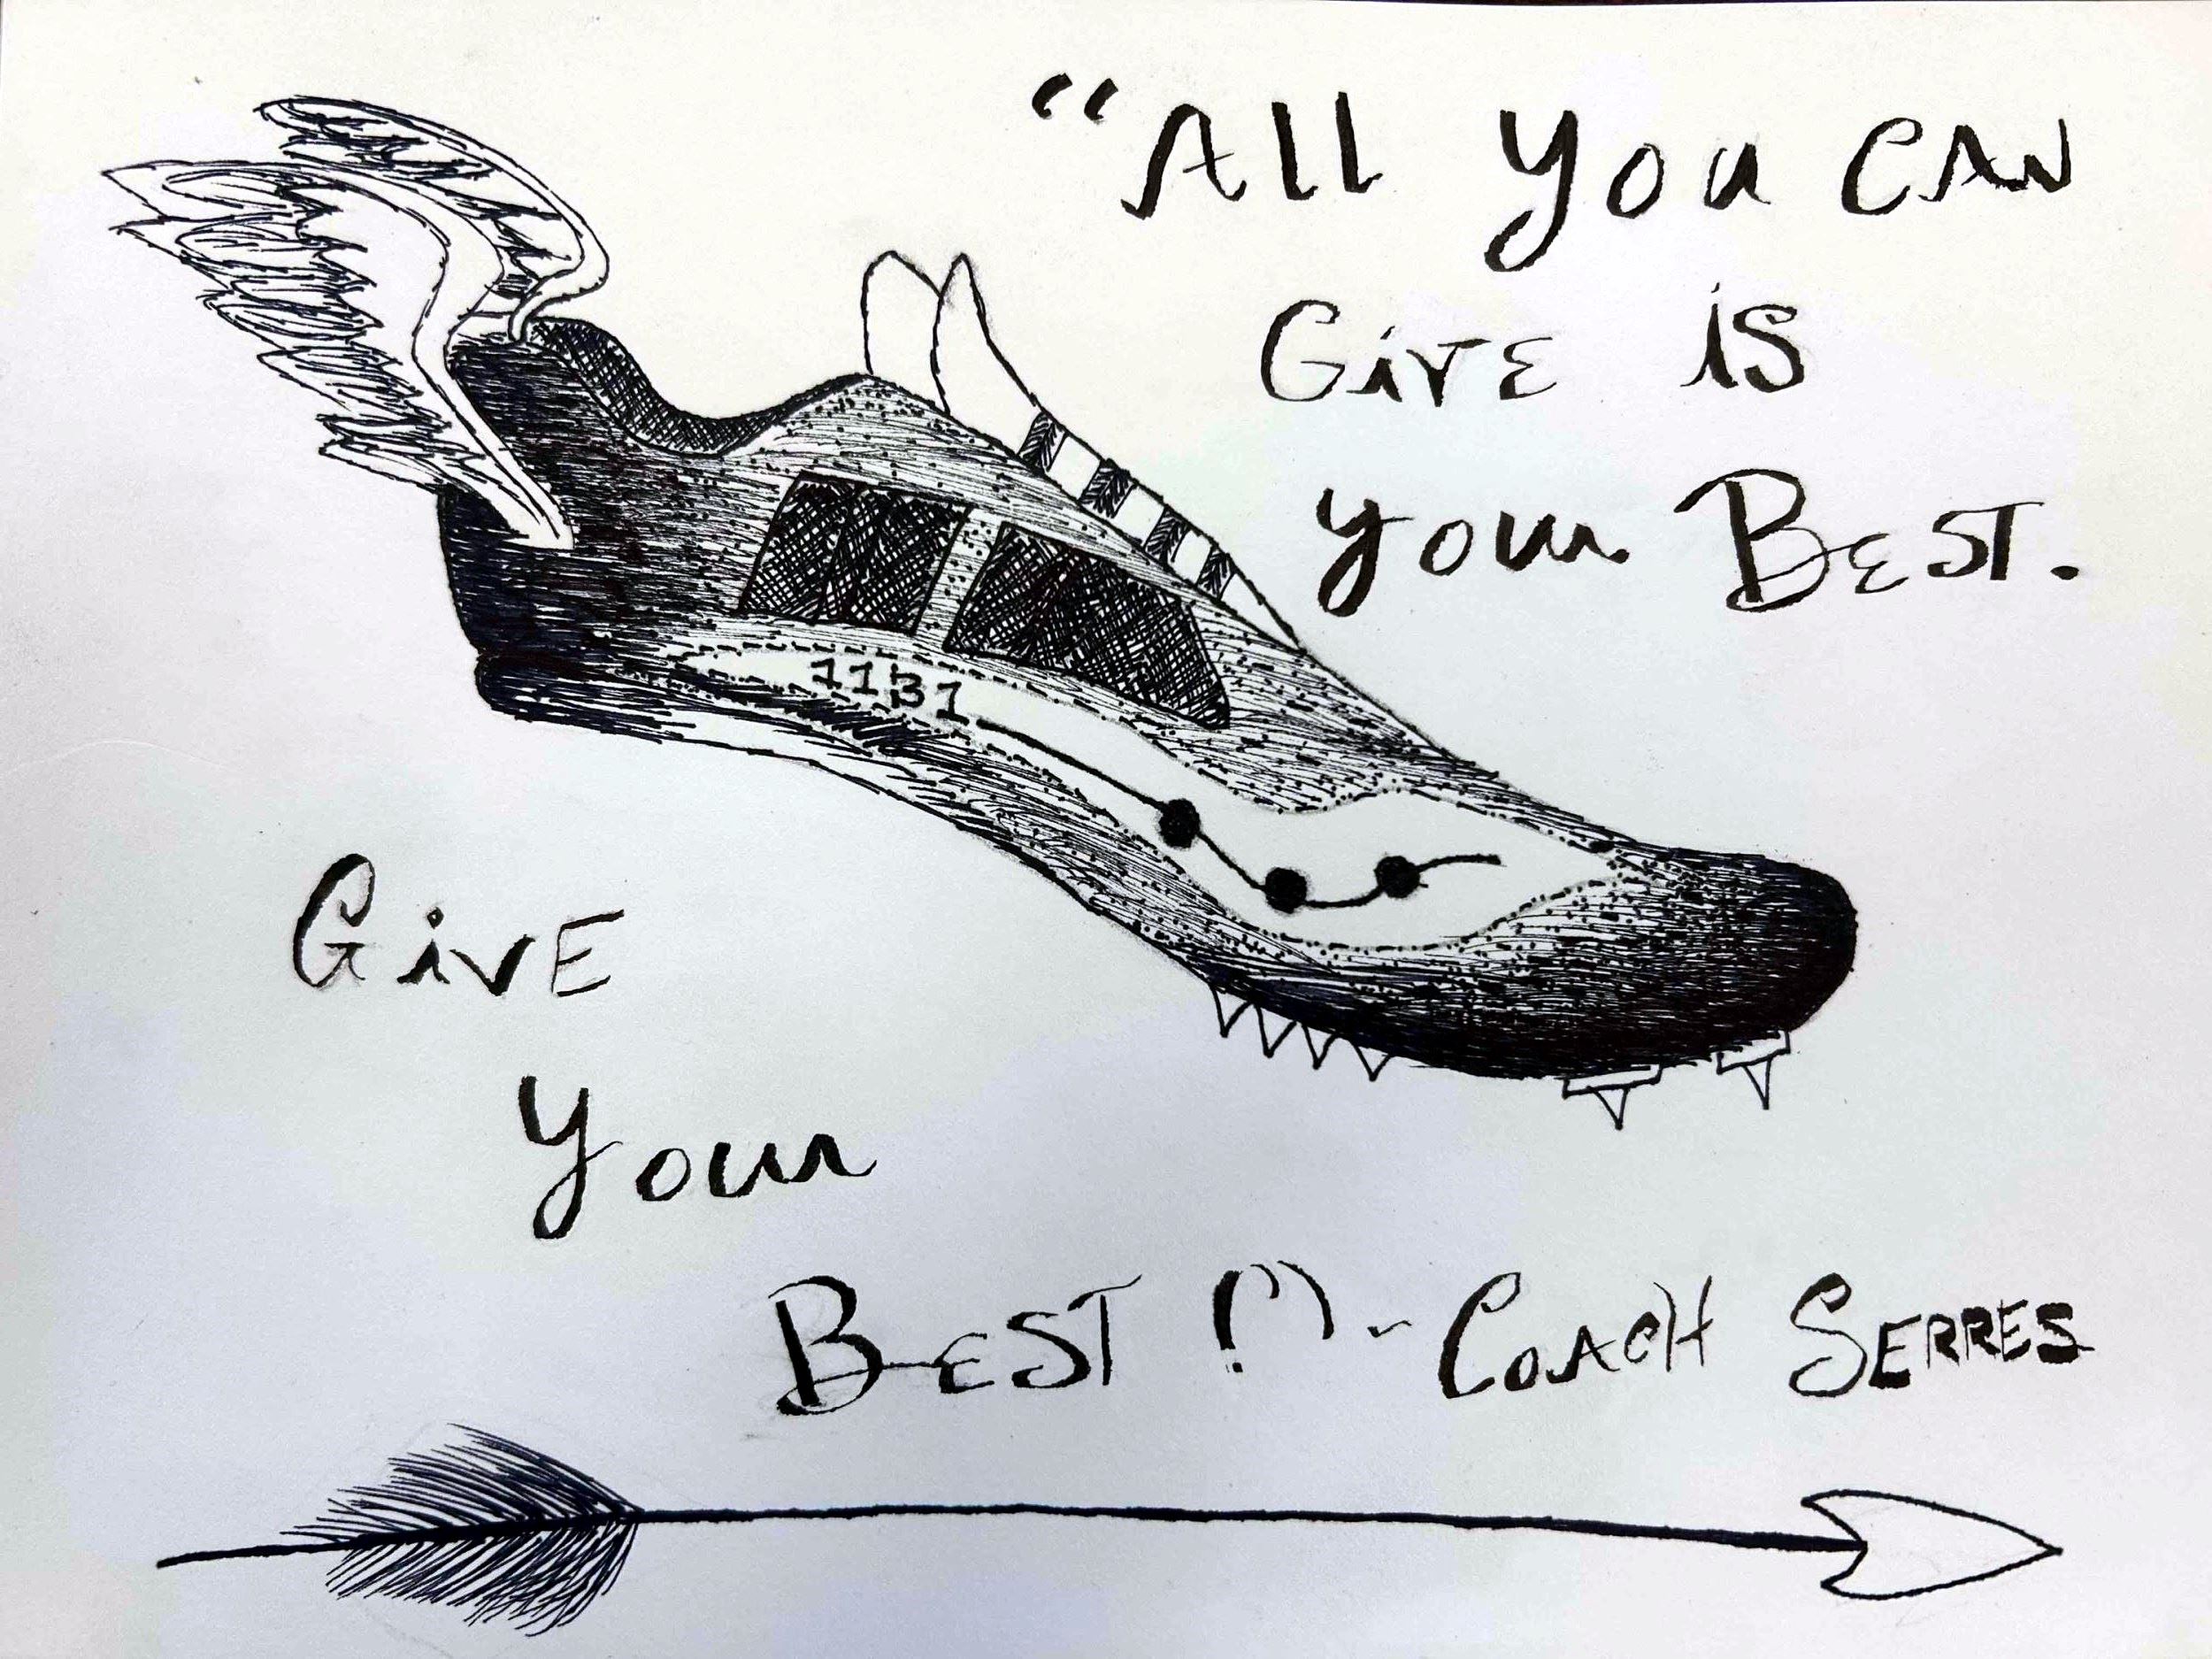 “All You CAN
GivE iS
your BEST.
1131
GivE
Your
BEST !”~ COACH SERRES